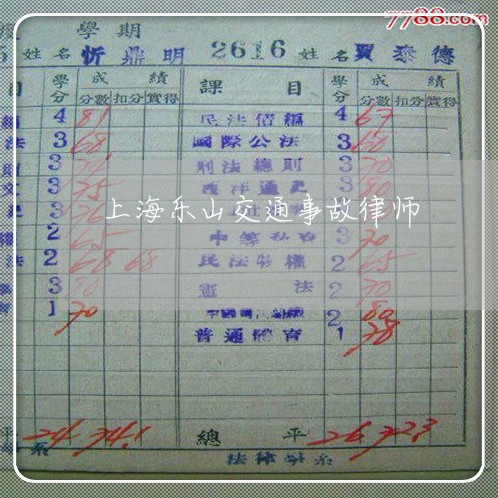 7788.com
學期
5 姓名 忻鼎明 2616 姓名 賈泰德
目 學分 成績 課目 學分 成績
分數 扣分 實得 分數 扣分 實得
4 81 民法債編 4 67
法 3 68 國際公法 3 60
3 刑法總則 3 70
3 75 西洋通史 3 80
3
上海乐山交通事故律师
2 65 3 70
法 2 68 68 民法物權 2 65
3 80 憲法 2 70
1 70 2 80
普通體育 1 78
平 24 74.1 總平 26 72.3
系 法律學系